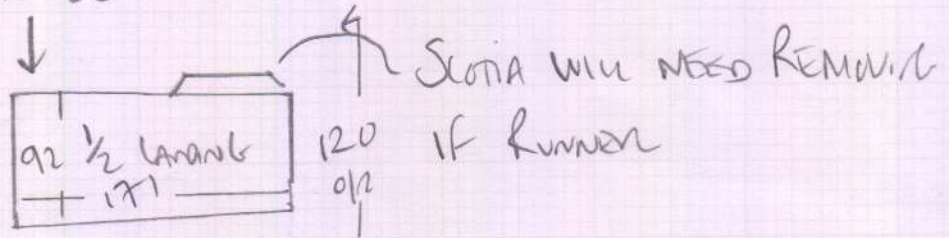 SCOTIA WILL NEED REMOVING
IF RUNNER
92 1/2 LANDING
171
120
O/R